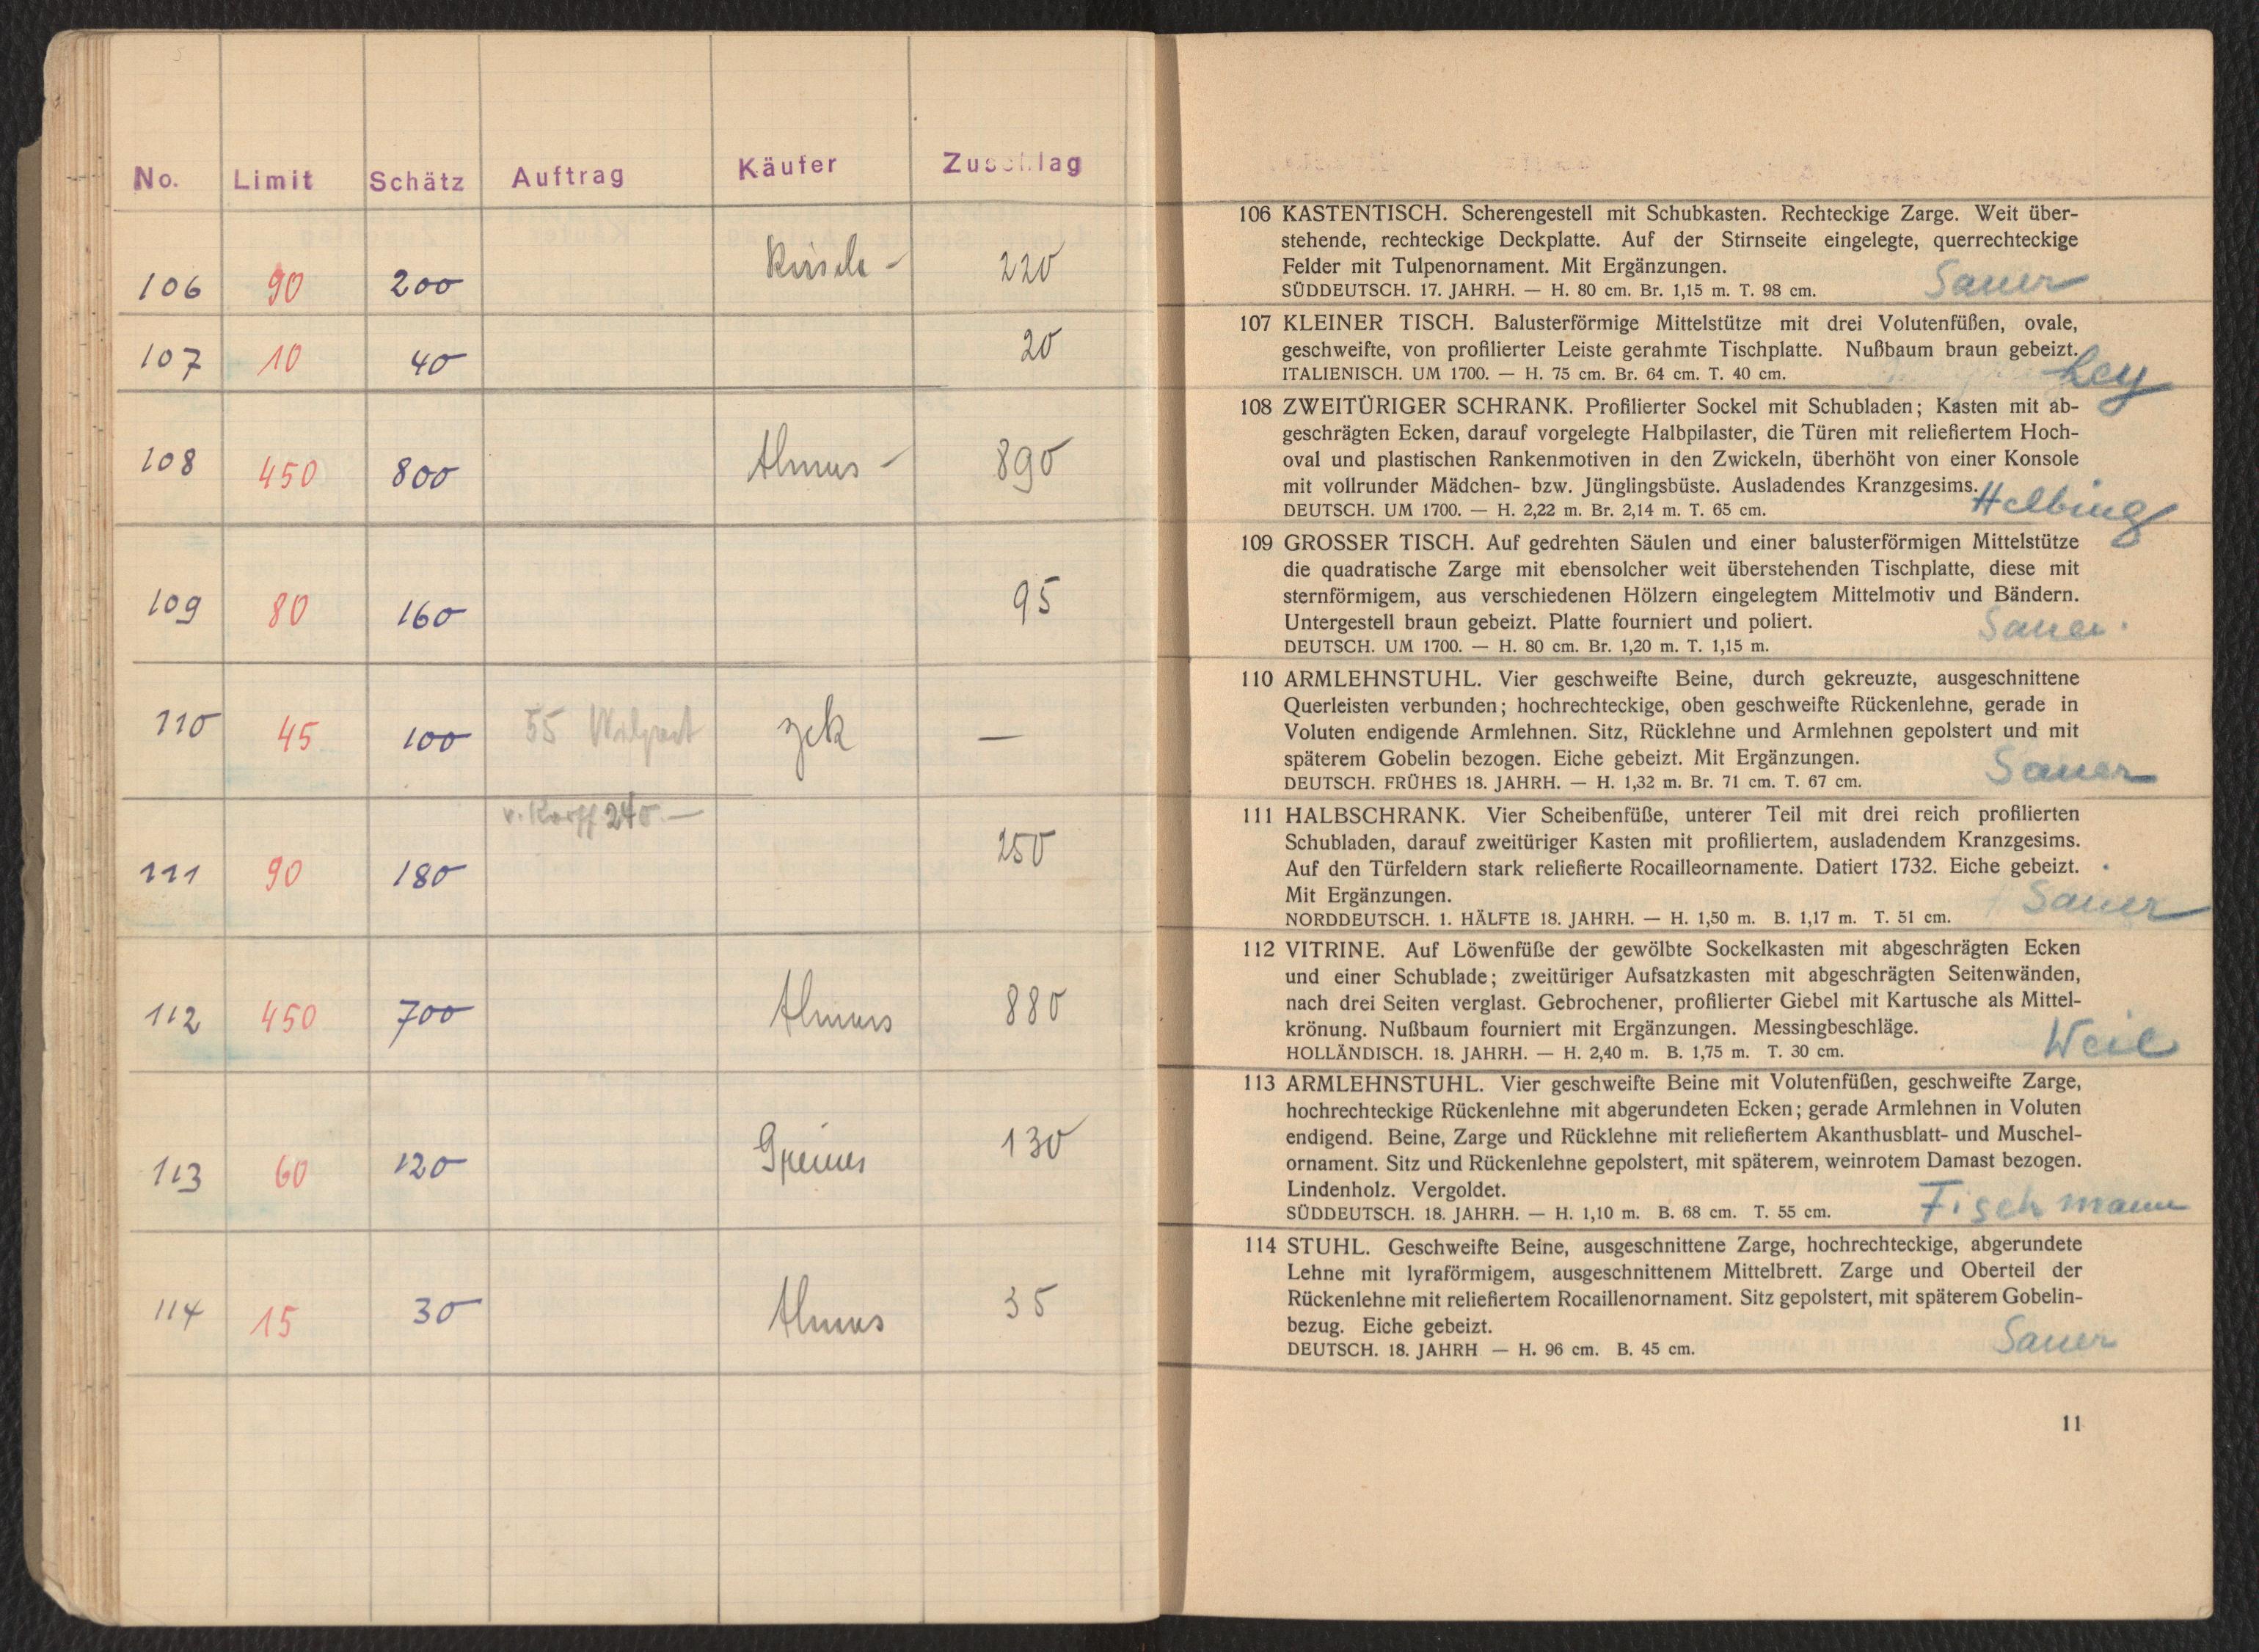 No. Limit Schätz Auftrag Käufer Zuschlag
106 90 200 220
107 10 40 20
108 450 800 890
109 80 160 95
110 45 100 55 zck —
v. Korff 240.—
111 90 180 250
112 450 700 880
113 60 120 130
114 15 30 35
106 KASTENTISCH. Scherengestell mit Schubkasten. Rechteckige Zarge. Weit über-
stehende, rechteckige Deckplatte. Auf der Stirnseite eingelegte, querrechteckige
Felder mit Tulpenornament. Mit Ergänzungen.
SÜDDEUTSCH. 17. JAHRH. — H. 80 cm. Br. 1,15 m. T. 98 cm.
Sauer
107 KLEINER TISCH. Balusterförmige Mittelstütze mit drei Volutenfüßen, ovale,
geschweifte, von profilierter Leiste gerahmte Tischplatte. Nußbaum braun gebeizt.
ITALIENISCH. UM 1700. — H. 75 cm. Br. 64 cm. T. 40 cm.
Ley
108 ZWEITÜRIGER SCHRANK. Profilierter Sockel mit Schubladen; Kasten mit ab-
geschrägten Ecken, darauf vorgelegte Halbpilaster, die Türen mit reliefiertem Hoch-
oval und plastischen Rankenmotiven in den Zwickeln, überhöht von einer Konsole
mit vollrunder Mädchen- bzw. Jünglingsbüste. Ausladendes Kranzgesims.
DEUTSCH. UM 1700. — H. 2,22 m. Br. 2,14 m. T. 65 cm.
Helbing
109 GROSSER TISCH. Auf gedrehten Säulen und einer balusterförmigen Mittelstütze
die quadratische Zarge mit ebensolcher weit überstehenden Tischplatte, diese mit
sternförmigem, aus verschiedenen Hölzern eingelegtem Mittelmotiv und Bändern.
Untergestell braun gebeizt. Platte fourniert und poliert.
DEUTSCH. UM 1700. — H. 80 cm. Br. 1,20 m. T. 1,15 m.
Sauer
110 ARMLEHNSTUHL. Vier geschweifte Beine, durch gekreuzte, ausgeschnittene
Querleisten verbunden; hochrechteckige, oben geschweifte Rückenlehne, gerade in
Voluten endigende Armlehnen. Sitz, Rücklehne und Armlehnen gepolstert und mit
späterem Gobelin bezogen. Eiche gebeizt. Mit Ergänzungen.
DEUTSCH. FRÜHES 18. JAHRH. — H. 1,32 m. Br. 71 cm. T. 67 cm.
Sauer
111 HALBSCHRANK. Vier Scheibenfüße, unterer Teil mit drei reich profilierten
Schubladen, darauf zweitüriger Kasten mit profiliertem, ausladendem Kranzgesims.
Auf den Türfeldern stark reliefierte Rocailleornamente. Datiert 1732. Eiche gebeizt.
Mit Ergänzungen.
NORDDEUTSCH. 1. HÄLFTE 18. JAHRH. — H. 1,50 m. B. 1,17 m. T. 51 cm.
Sauer
112 VITRINE. Auf Löwenfüße der gewölbte Sockelkasten mit abgeschrägten Ecken
und einer Schublade; zweitüriger Aufsatzkasten mit abgeschrägten Seitenwänden,
nach drei Seiten verglast. Gebrochener, profilierter Giebel mit Kartusche als Mittel-
krönung. Nußbaum fourniert mit Ergänzungen. Messingbeschläge.
HOLLÄNDISCH. 18. JAHRH. — H. 2,40 m. B. 1,75 m. T. 30 cm.
Weil
113 ARMLEHNSTUHL. Vier geschweifte Beine mit Volutenfüßen, geschweifte Zarge,
hochrechteckige Rückenlehne mit abgerundeten Ecken; gerade Armlehnen in Voluten
endigend. Beine, Zarge und Rücklehne mit reliefiertem Akanthusblatt- und Muschel-
ornament. Sitz und Rückenlehne gepolstert, mit späterem, weinrotem Damast bezogen.
Lindenholz. Vergoldet.
SÜDDEUTSCH. 18. JAHRH. — H. 1,10 m. B. 68 cm. T. 55 cm.
Fischmann
114 STUHL. Geschweifte Beine, ausgeschnittene Zarge, hochrechteckige, abgerundete
Lehne mit lyraförmigem, ausgeschnittenem Mittelbrett. Zarge und Oberteil der
Rückenlehne mit reliefiertem Rocaillenornament. Sitz gepolstert, mit späterem Gobelin-
bezug. Eiche gebeizt.
DEUTSCH. 18. JAHRH — H. 96 cm. B. 45 cm.
Sauer
11